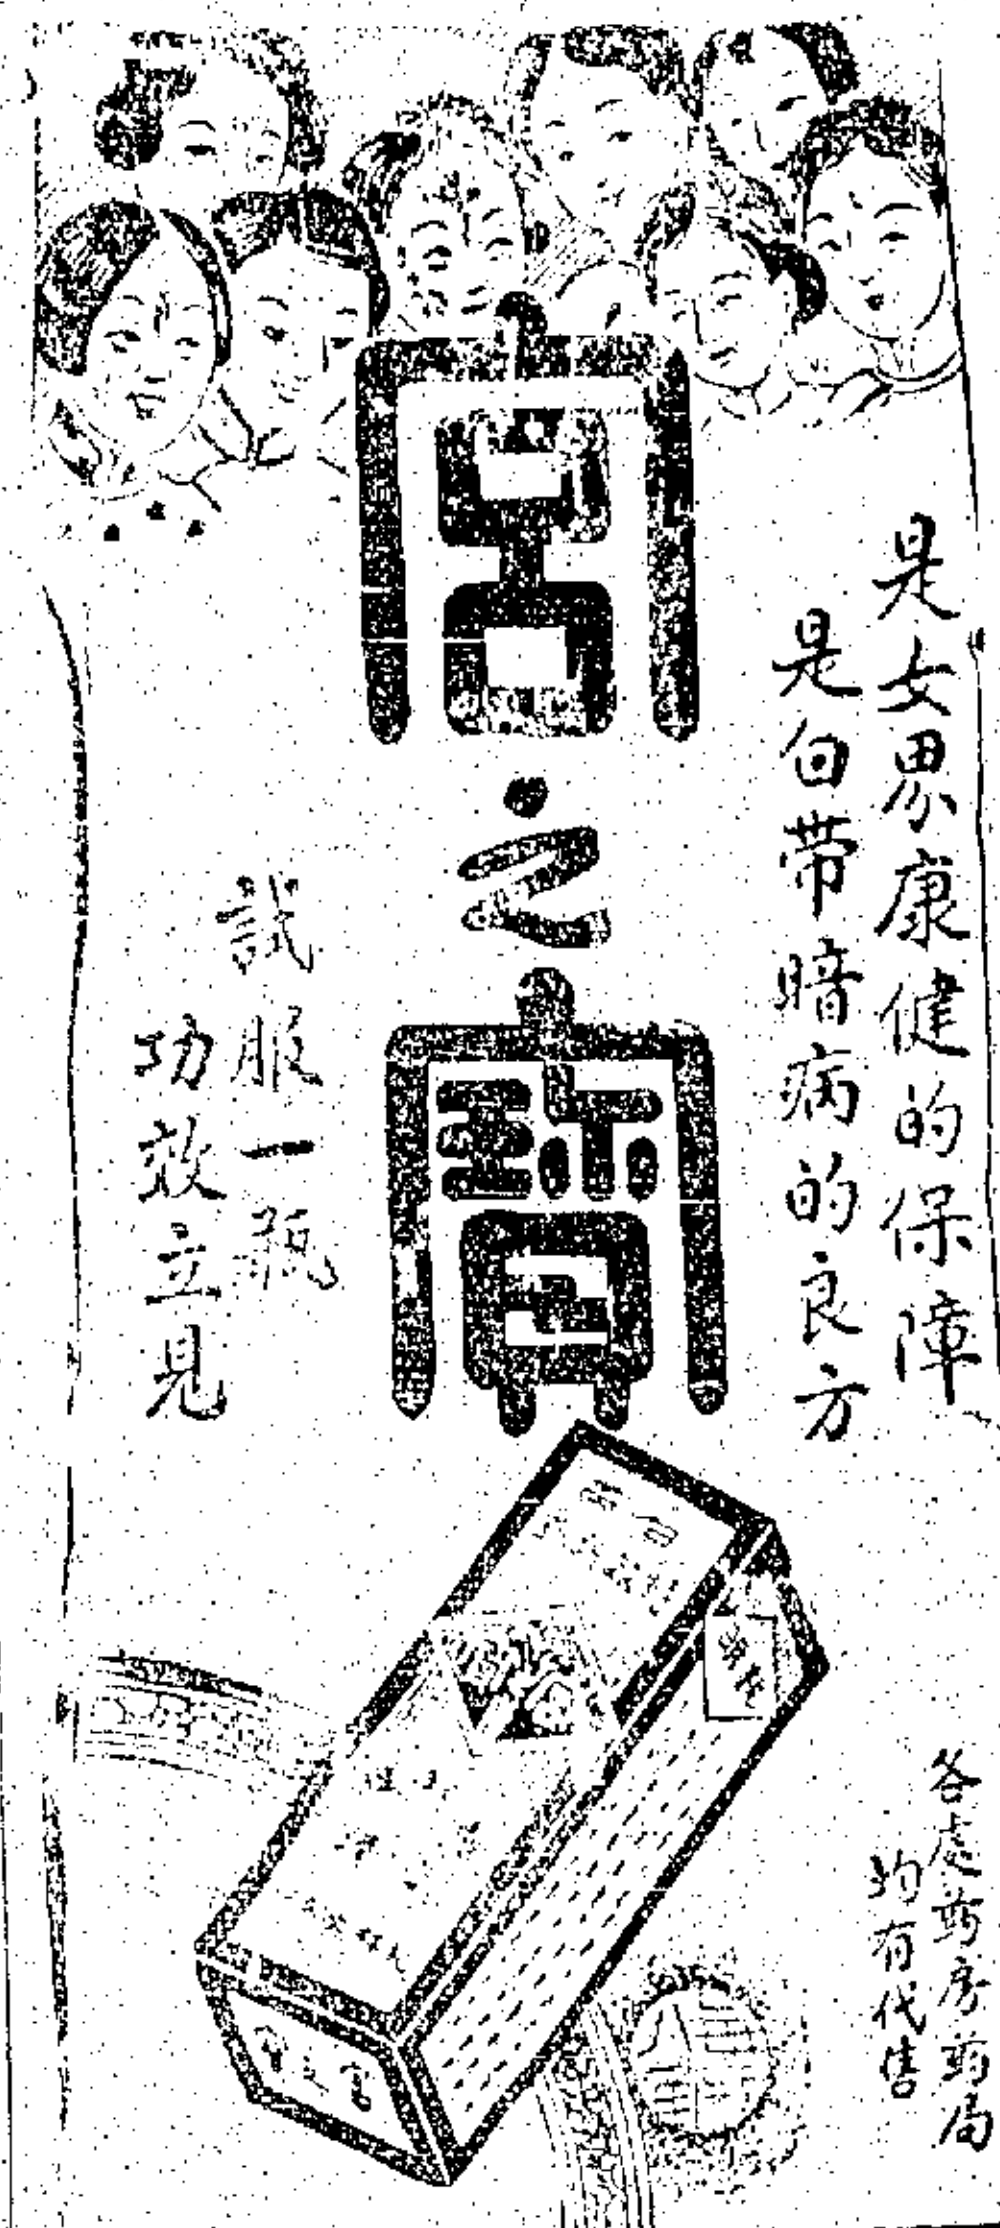 是女界康健的保障
是白带暗病的良方
宮之寶
試服一瓶
功效立見
各處药房药局
均有代售